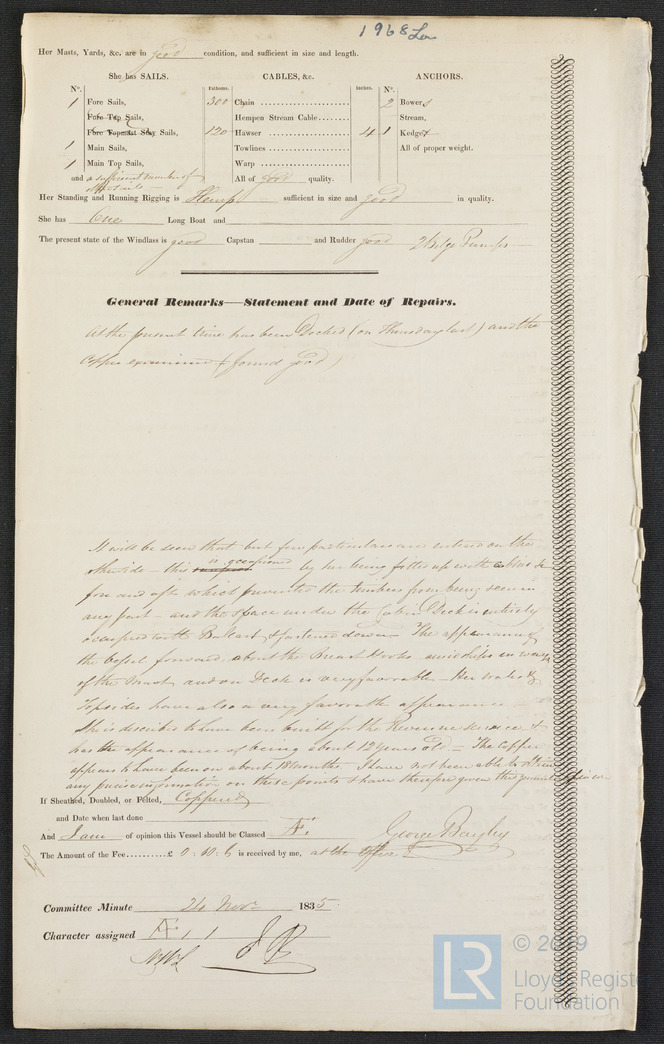 1968 Lon
Her Masts, Yards, &c. are in good condition, and sufficient in size and length.
She has SAILS. CABLES, &c. ANCHORS.
No. Fathoms. Inches. No.
1 Fore Sails, 300 Chain 2 Bowers
Fore Top Sails, Hempen Stream Cable Stream,
Fore Topmast Stay Sails, 120 Hawser 4 1 Kedges
1 Main Sails, Towlines All of proper weight.
1 Main Top Sails, Warp
and a sufficient number of All of good quality.
Her Standing and Running Rigging is Hemp sufficient in size and good in quality.
She has One Long Boat and
The present state of the Windlass is good Capstan and Rudder good 2 Bilge Pumps
General Remarks—Statement and Date of Repairs.
At the present time has been Docked (on Thursday last) and the
Copper examined (found good)
It will be seen that but few particulars are entered on the
other side – this is occasioned by her being fitted up with cabins &
fore and aft which prevented the timbers from being seen in
any part – and the space under the Cabin Deck is entirely
occupied with Ballast & fastened down – The appearance of
the vessel forward about the Breast Hooks amidships in way
of the mast and on Deck is very favorable – Her wales &
Topsides have also a very favorable appearance –
She is described to have been built for the Revenue service &
has the appearance of being about 12 years old – The Copper
appears to have been on about 18 months I have not been able to obtain
any precise information on these points & have therefore given the general opinion
If Sheathed, Doubled, or Felted, Coppered
and Date when last done
And I am of opinion this Vessel should be Classed Æ1
George Bayley
The Amount of the Fee £ 0:10:6 is received by me, at the Office
Committee Minute 24 Novr 1835
Character assigned Æ 1
© 2019
LR
Lloyd's Register
Foundation